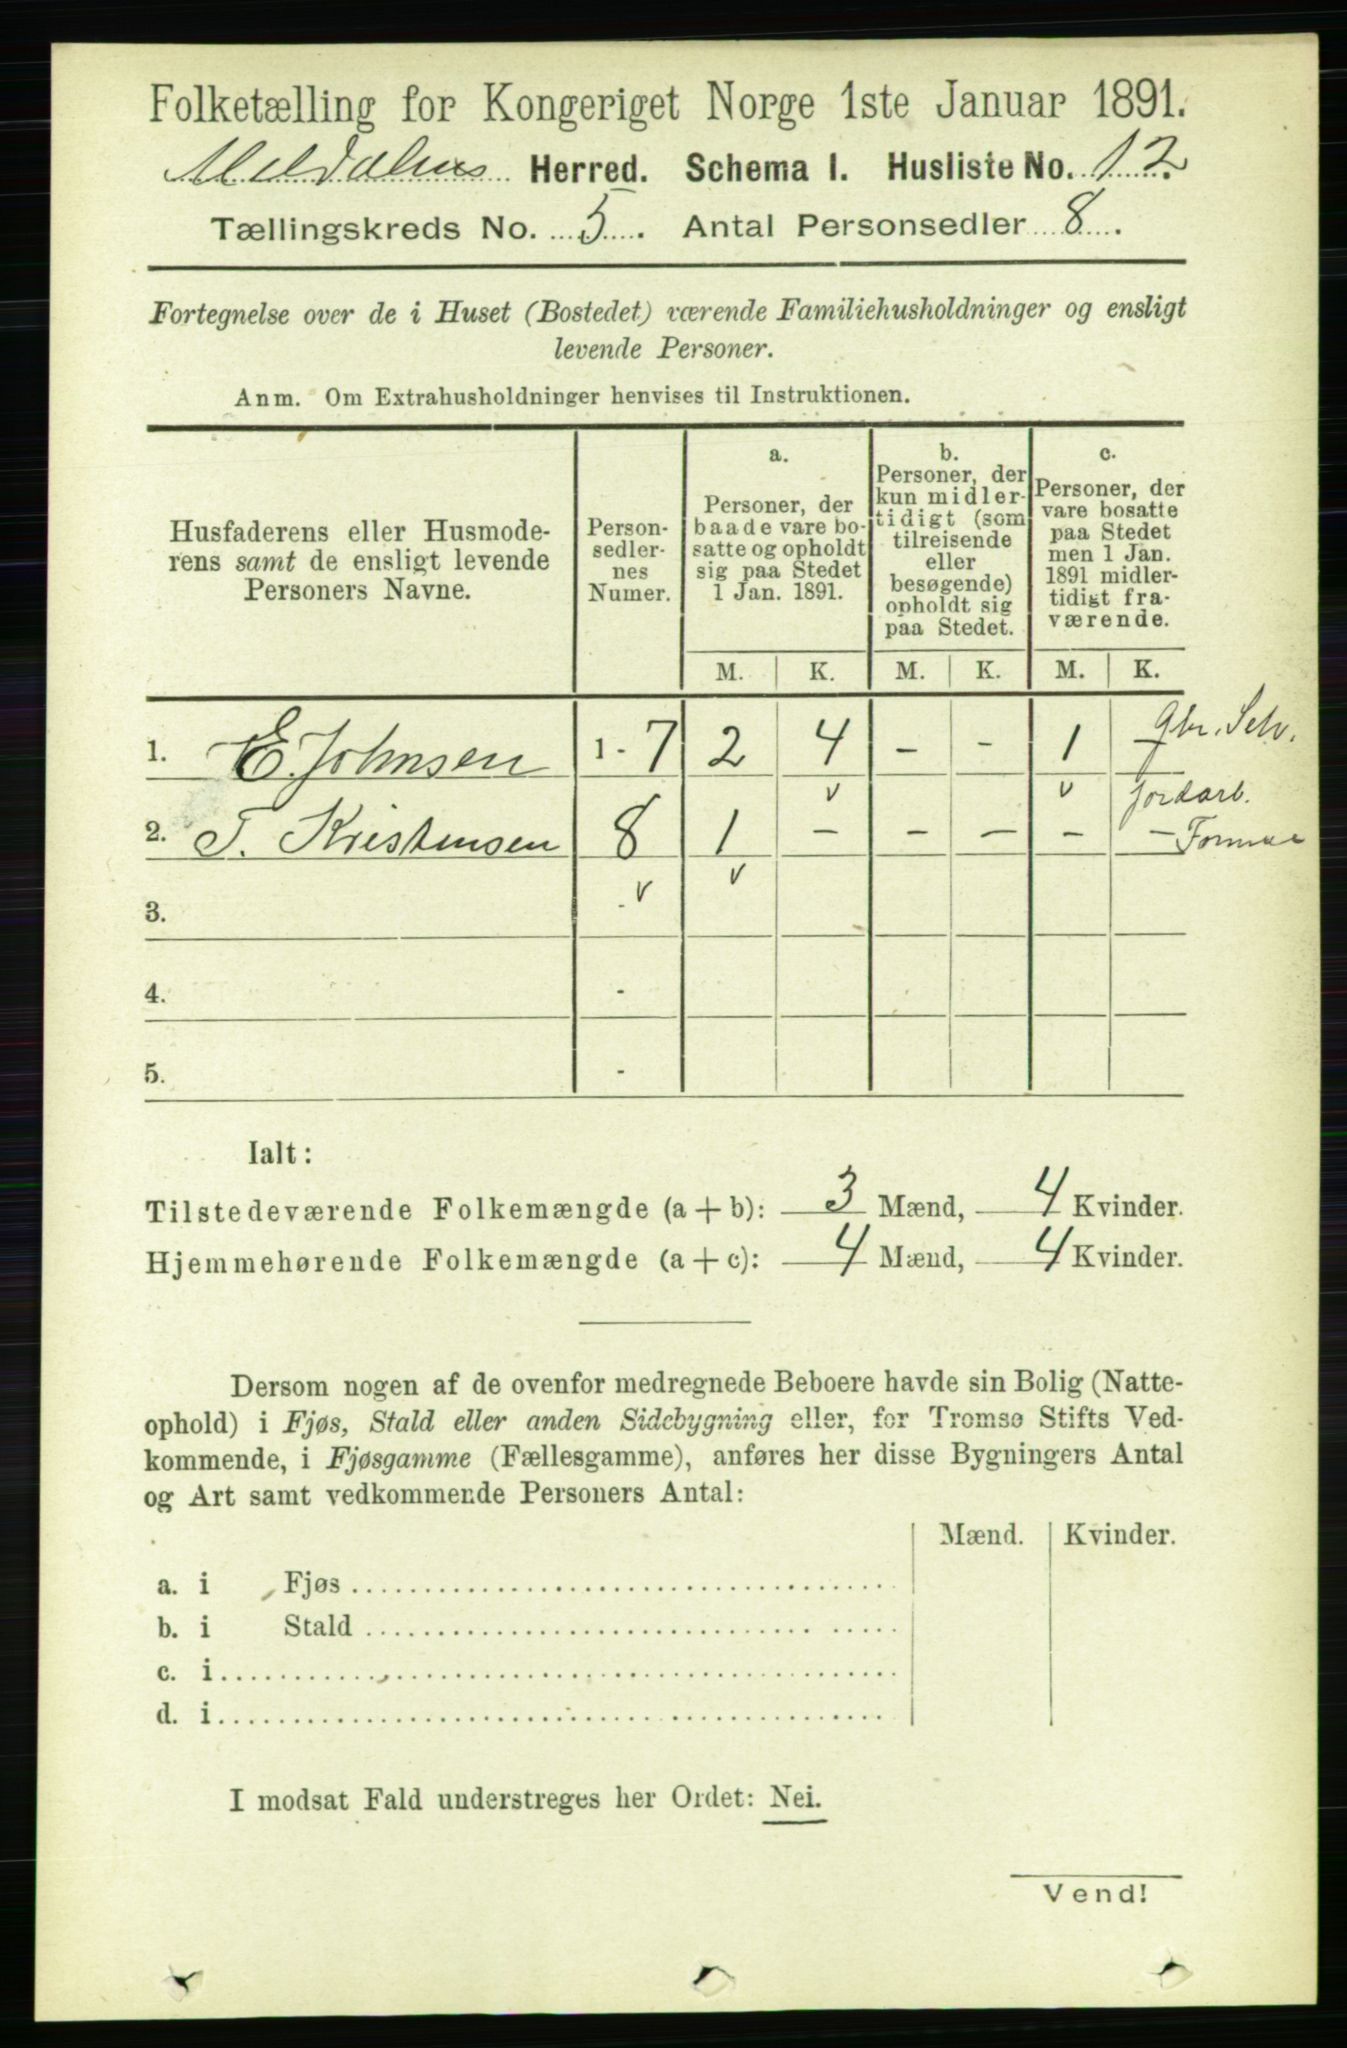 Folketælling for Kongeriget Norge 1ste Januar 1891.
Herred. Schema I. Husliste No. 12.
Tællingskreds No. 5. Antal Personsedler 8.
Fortegnelse over de i Huset (Bostedet) værende Familiehusholdninger og ensligt
levende Personer.
Anm. Om Extrahusholdninger henvises til Instruktionen.
Husfaderens eller Husmode-
rens samt de ensligt levende
Personers Navne.
Person-
sedler-
nes
Numer.
a.
Personer, der
baade vare bo-
satte og opholdt
sig paa Stedet
1 Jan. 1891.
b.
Personer, der
kun midler-
tidigt (som
tilreisende
eller
besøgende)
opholdt sig
paa Stedet.
c.
Personer, der
vare bosatte
paa Stedet
men 1 Jan.
1891 midler-
tidigt fra-
værende.
M. K. M. K. M. K.
1. E. Johnsen 1 - 7 2 4 - - 1 - Gbr. Selv.
v v Jordarb.
2. T. Kristensen 8 1 - - - - -
v v
3. -
4. -
5. -
Ialt:
Tilstedeværende Folkemængde (a + b): 3 Mænd, 4 Kvinder.
Hjemmehørende Folkemængde (a + c): 4 Mænd, 4 Kvinder.
Dersom nogen af de ovenfor medregnede Beboere havde sin Bolig (Natte-
ophold) i Fjøs, Stald eller anden Sidebygning eller, for Tromsø Stifts Ved-
kommende, i Fjøsgamme (Fællesgamme), anføres her disse Bygningers Antal
og Art samt vedkommende Personers Antal:
Mænd. Kvinder.
a. i Fjøs
b. i Stald
c. i
d. i
I modsat Fald understreges her Ordet: Nei.
Vend!